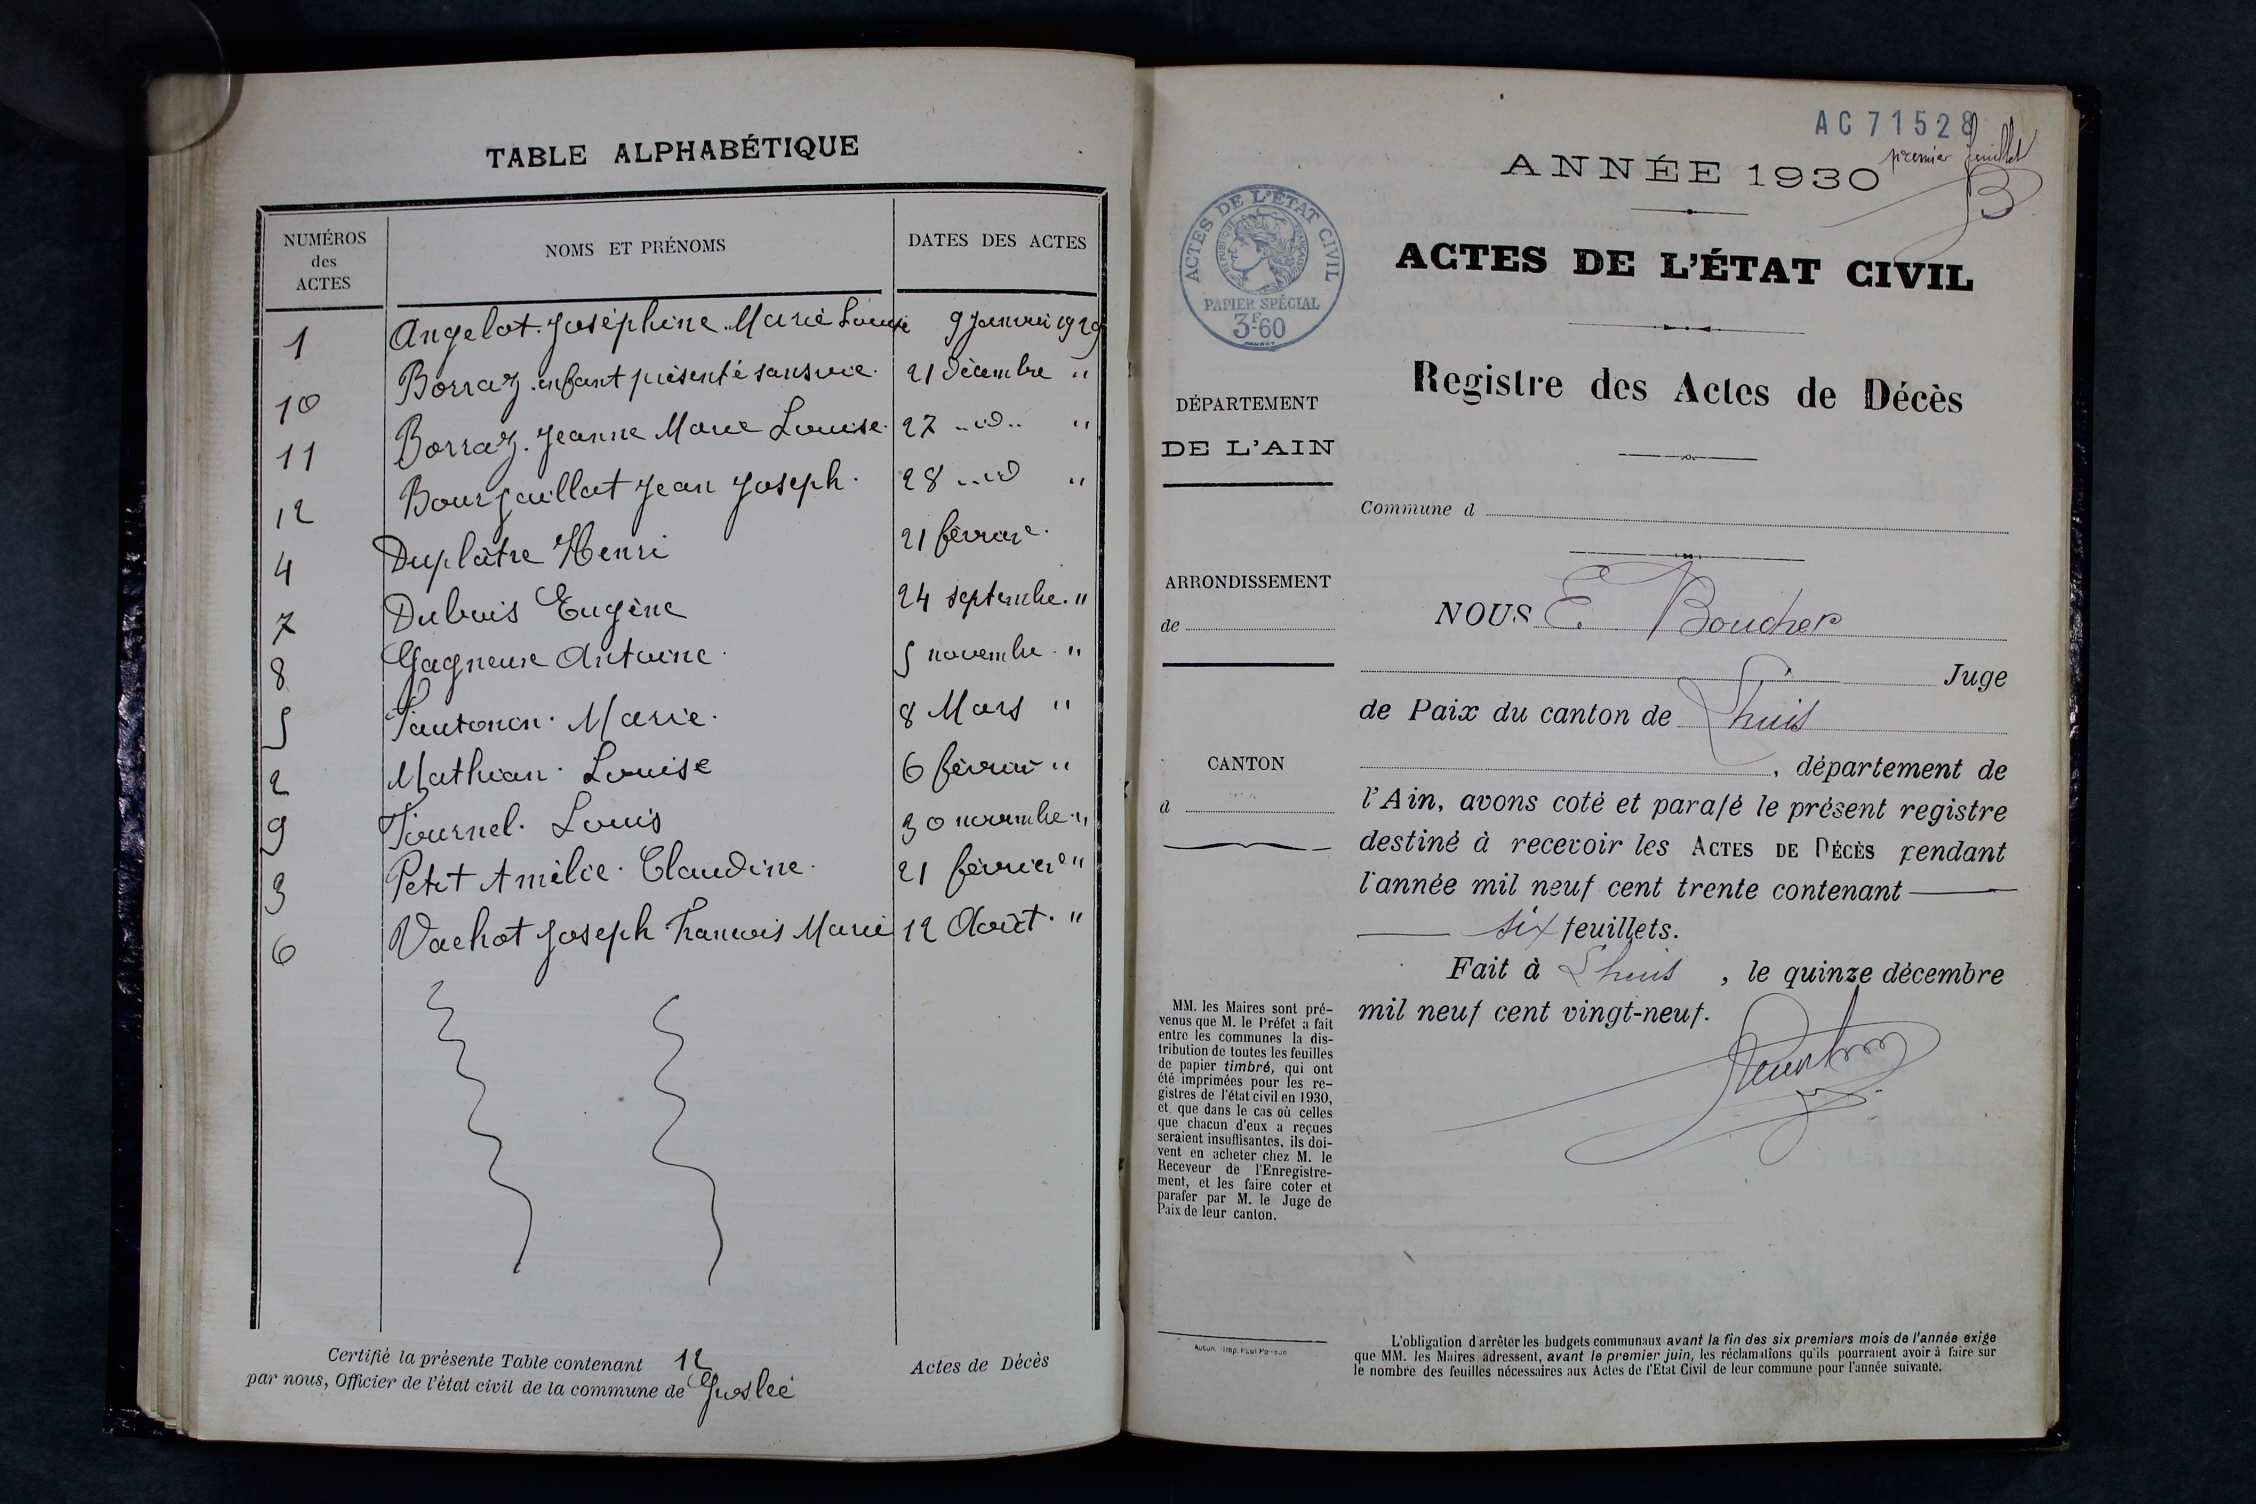 TABLE ALPHABÉTIQUE
NUMÉROS des ACTES
NOMS ET PRÉNOMS
DATES DES ACTES
1 Angelot. Joséphine Marie Louise 9 Janvier 1929
10 Borraz. enfant présenté sans vie. 21 décembre "
11 Borraz. Jeanne Marie Louise. 27 ..id.. "
12 Jean Joseph. 28 ..id "
4 Duplâtre Henri 21 février.
7 Dubuis Eugène 24 septembre. "
8 Antoine. 5 novembre. "
5 Marie. 8 Mars "
2 Mathian. Louise 6 février "
9 Louis 30 novembre. "
3 Petit Amélie. Claudine. 21 février "
6 Vachot Joseph Francois Marie 12 Août. "
Certifié la présente Table contenant 12 Actes de Décès
par nous, Officier de l'état civil de la commune de Groslée
AC 71528
premier feuillet
ANNÉE 1930
ACTES DE L'ÉTAT CIVIL
RÉPUBLIQUE FRANÇAISE
PAPIER SPÉCIAL
3F.60
ACTES DE L'ÉTAT CIVIL
Registre des Actes de Décès
DÉPARTEMENT
DE L'AIN
Commune d
ARRONDISSEMENT
de
CANTON
d
NOUS E. Boucher
Juge
de Paix du canton de Lhuis
, département de
l'Ain, avons coté et parafé le présent registre
destiné à recevoir les ACTES DE DÉCÈS pendant
l'année mil neuf cent trente contenant
six feuillets.
Fait à Lhuis , le quinze décembre
mil neuf cent vingt-neuf.
MM. les Maires sont pré-
venus que M. le Préfet a fait
entre les communes la dis-
tribution de toutes les feuilles
de papier timbré, qui ont
été imprimées pour les re-
gistres de l'état civil en 1930,
et que dans le cas où celles
que chacun d'eux a reçues
seraient insuffisantes, ils doi-
vent en acheter chez M. le
Receveur de l'Enregistre-
ment, et les faire coter et
parafer par M. le Juge de
Paix de leur canton.
Autun. Imp. Paul
L'obligation d'arrêter les budgets communaux avant la fin des six premiers mois de l'année exige
que MM. les Maires adressent, avant le premier juin, les réclamations qu'ils pourraient avoir à faire sur
le nombre des feuilles nécessaires aux Actes de l'Etat Civil de leur commune pour l'année suivante.